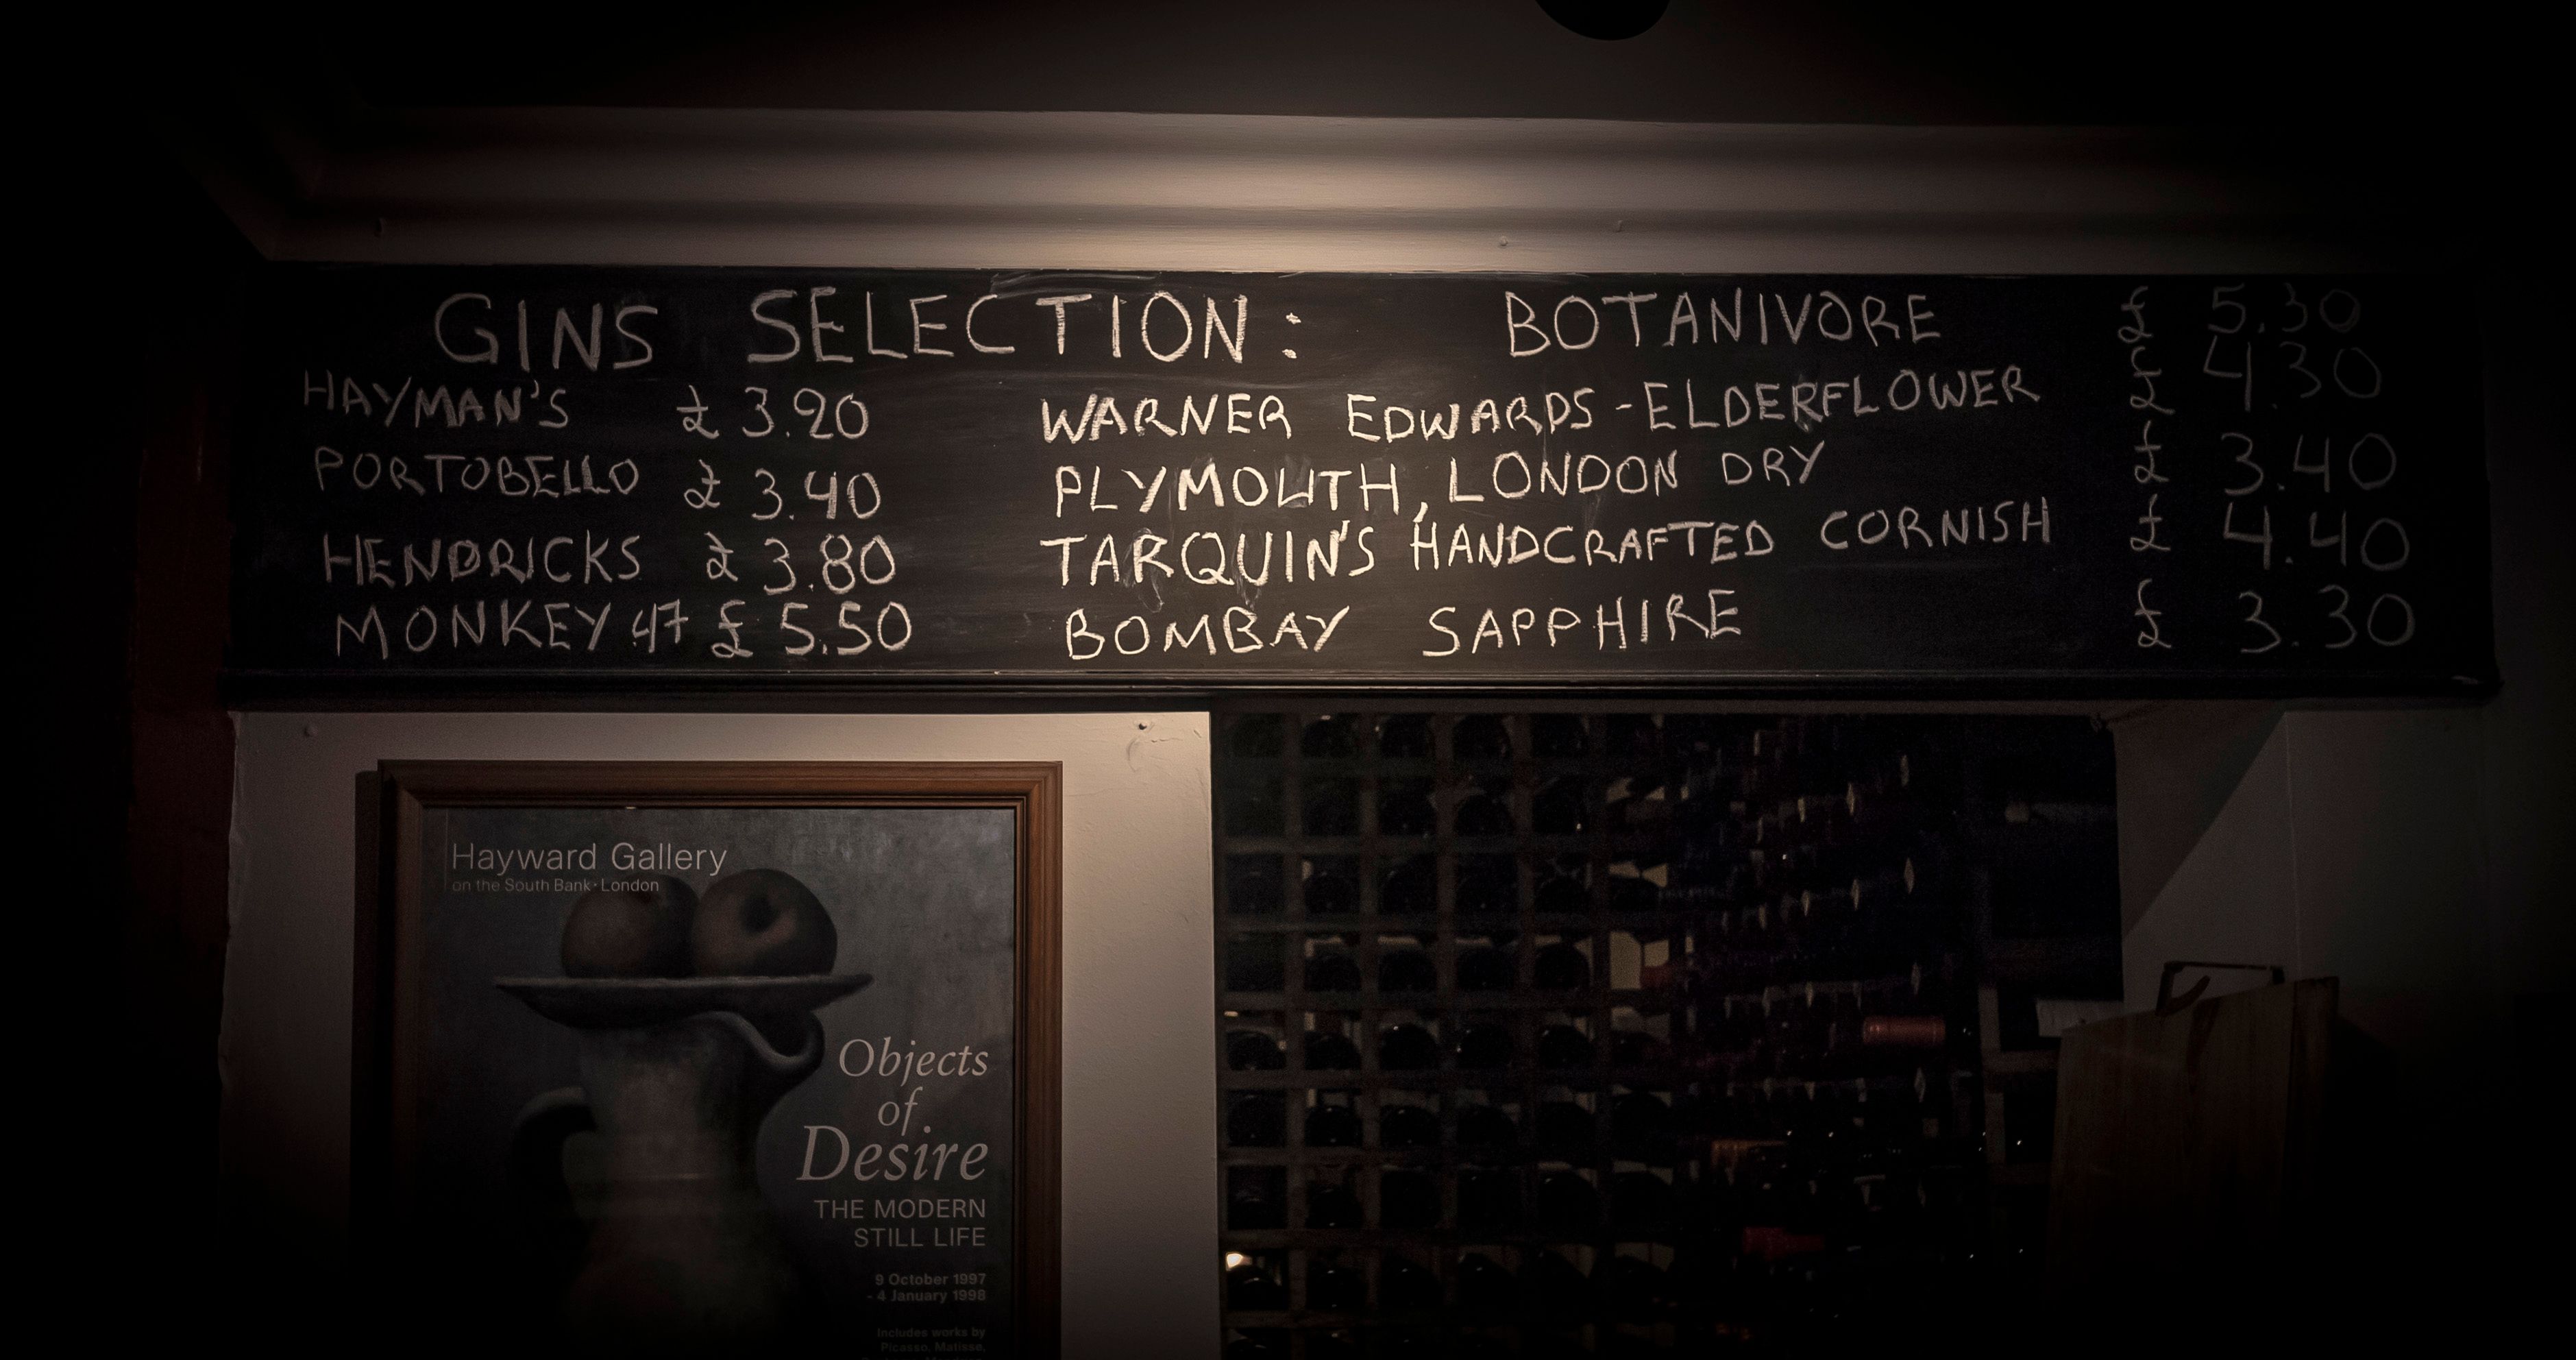 GINS SELECTION:
HAYMAN'S £ 3.20
PORTOBELLO £ 3.40
HENDRICKS £ 3.80
MONKEY 47 £ 5.50
BOTANIVORE £ 5.30
WARNER EDWARDS - ELDERFLOWER £ 4.30
PLYMOUTH, LONDON DRY £ 3.40
TARQUIN'S HANDCRAFTED CORNISH £ 4.40
BOMBAY SAPPHIRE £ 3.30
Hayward Gallery
on the South Bank · London
Objects
of
Desire
THE MODERN
STILL LIFE
9 October 1997
- 4 January 1998
Includes works by
Picasso, Matisse,